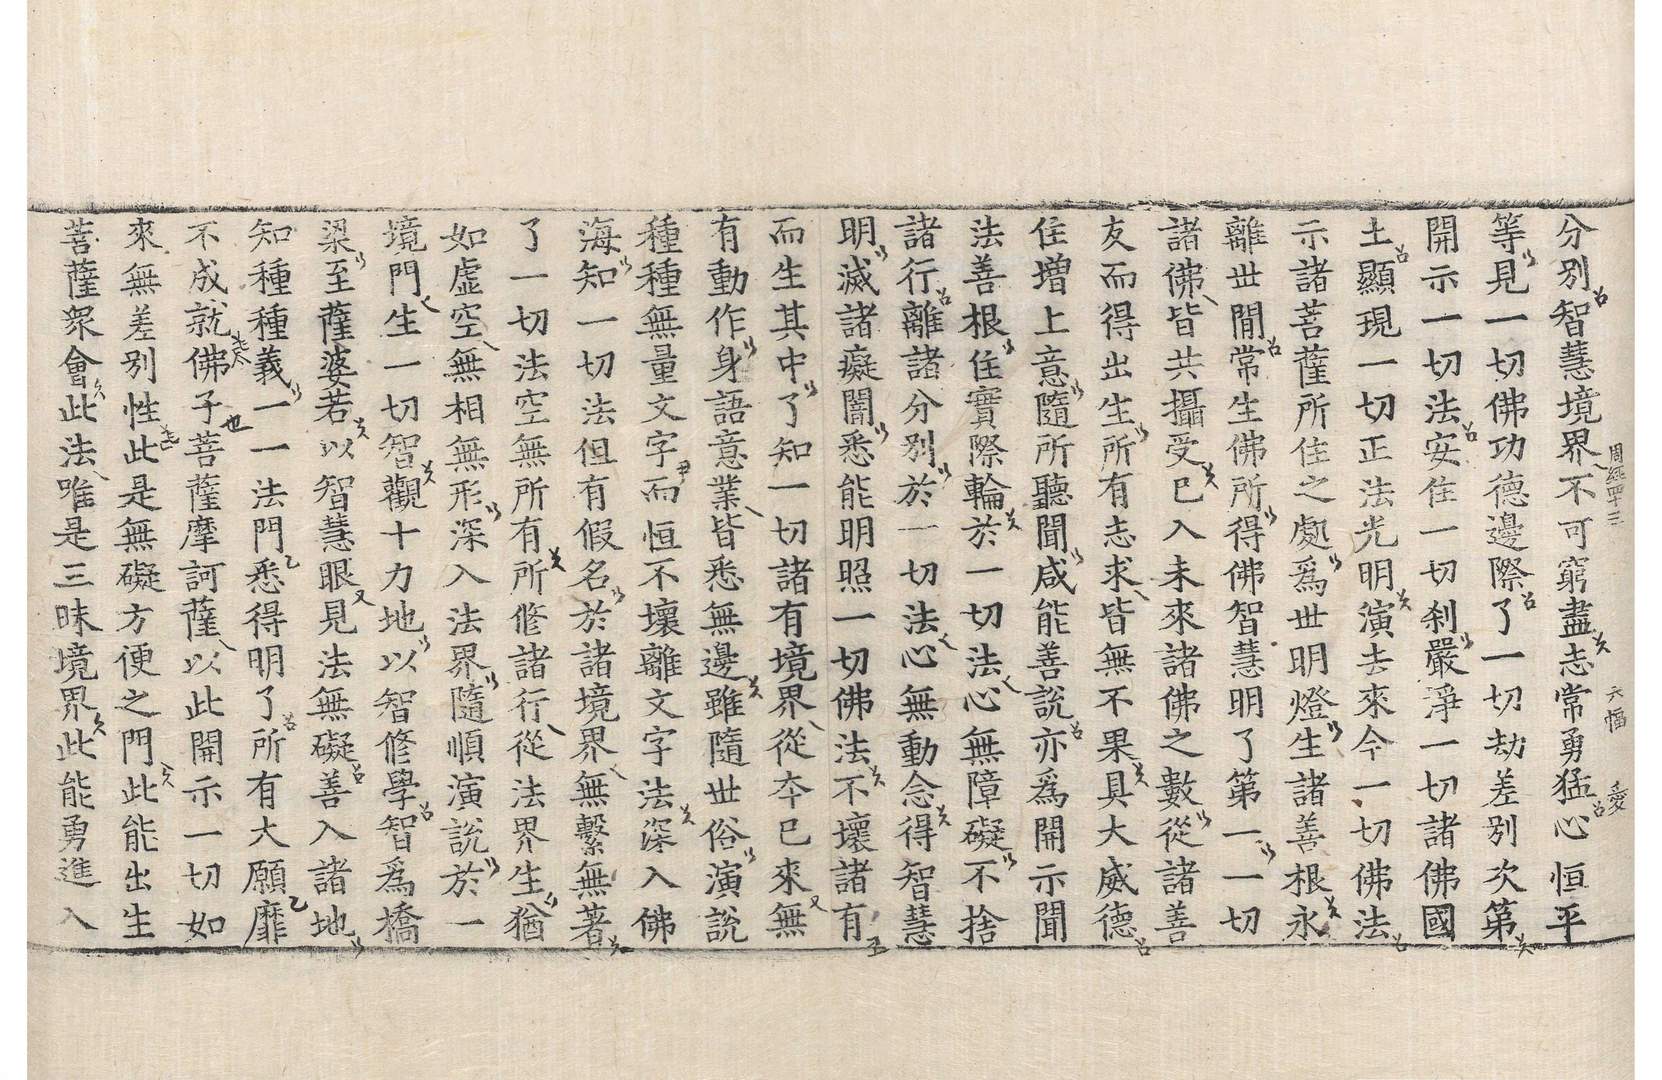 周經四十三 六幅
分別智慧境界不可窮盡志常勇猛心恒平
等見一切佛功德邊際了一切劫差別次第
開示一切法安住一切刹嚴淨一切諸佛國
土顯現一切正法光明演去來今一切佛法
示諸菩薩所住之處爲世明燈生諸善根永
離世間常生佛所得佛智慧明了第一一切
諸佛皆共攝受已入未來諸佛之數從諸善
友而得出生所有志求皆無不果具大威德
住增上意隨所聽聞咸能善說亦爲開示聞
法善根住實際輪於一切法心無障礙不捨
諸行離諸分別於一切法心無動念得智慧
明滅諸癡闇悉能明照一切佛法不壞諸有
而生其中了知一切諸有境界從夲已來無
有動作身語意業皆悉無邊雖隨世俗演說
種種無量文字而恒不壞離文字法深入佛
海知一切法但有假名於諸境界無繫無著
了一切法空無所有所修諸行從法界生猶
如虛空無相無形深入法界隨順演說於一
境門生一切智觀十力地以智修學智爲橋
梁至薩婆若以智慧眼見法無礙善入諸地
知種種義一一法門悉得明了所有大願靡
不成就佛子菩薩摩訶薩以此開示一切如
來無差別性此是無礙方便之門此能出生
菩薩衆會此法唯是三昧境界此能勇進入